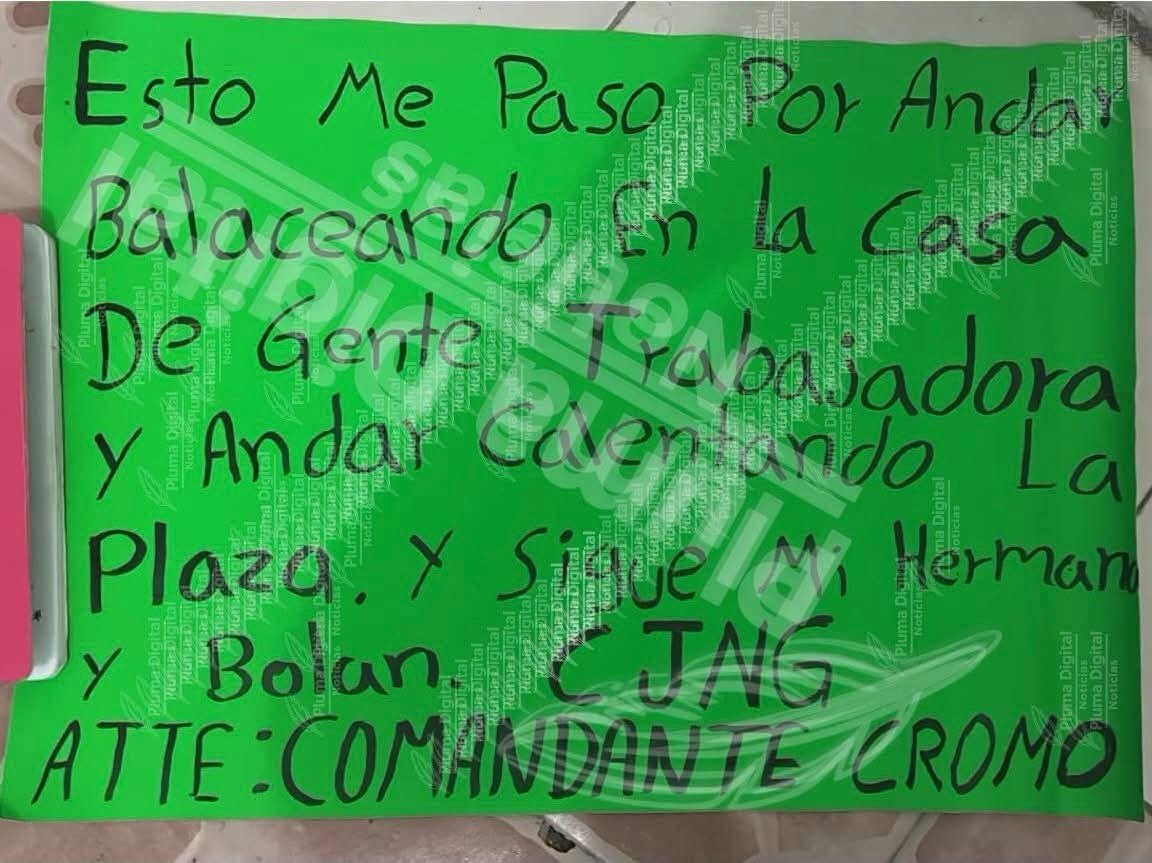 Esto Me Paso Por Andar
Balaceando En La Casa
De Gente Trabajadora
y Andar Calentando La
Plaza. Y Sigue Mi Hermano
y Bolan. CJNG
ATTE: COMANDANTE CROMO
Pluma Digital
Noticias